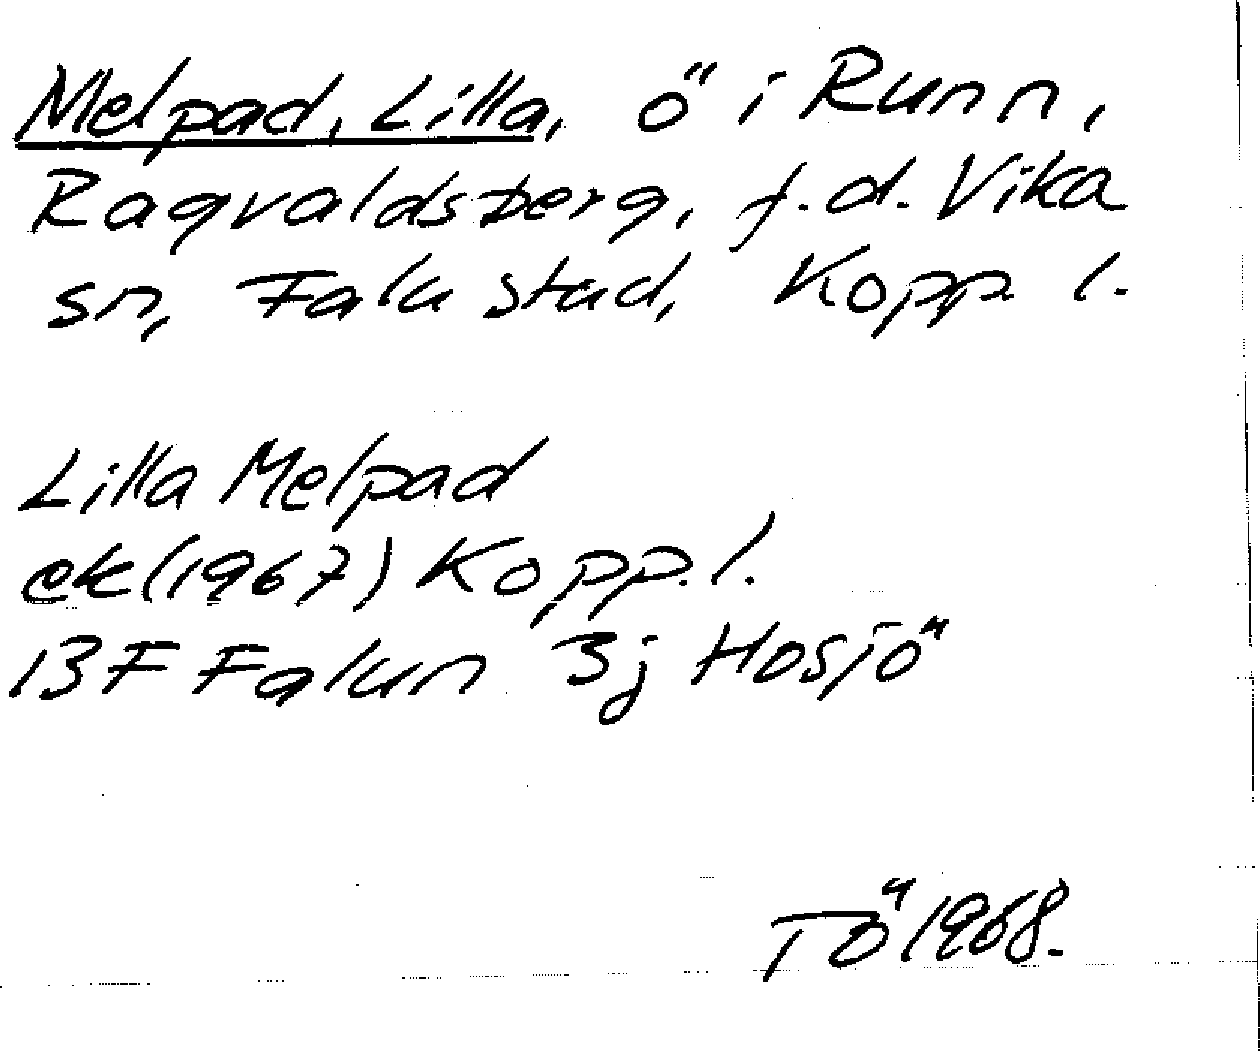 Melpad, Lilla, ö i Runn,
Ragvaldsberg, f.d. Vika
sn, Falu stad, Kopp. l.
Lilla Melpad
ek (1967) Kopp. l.
13F Falun 3j Hosjö
TÖ 1968.